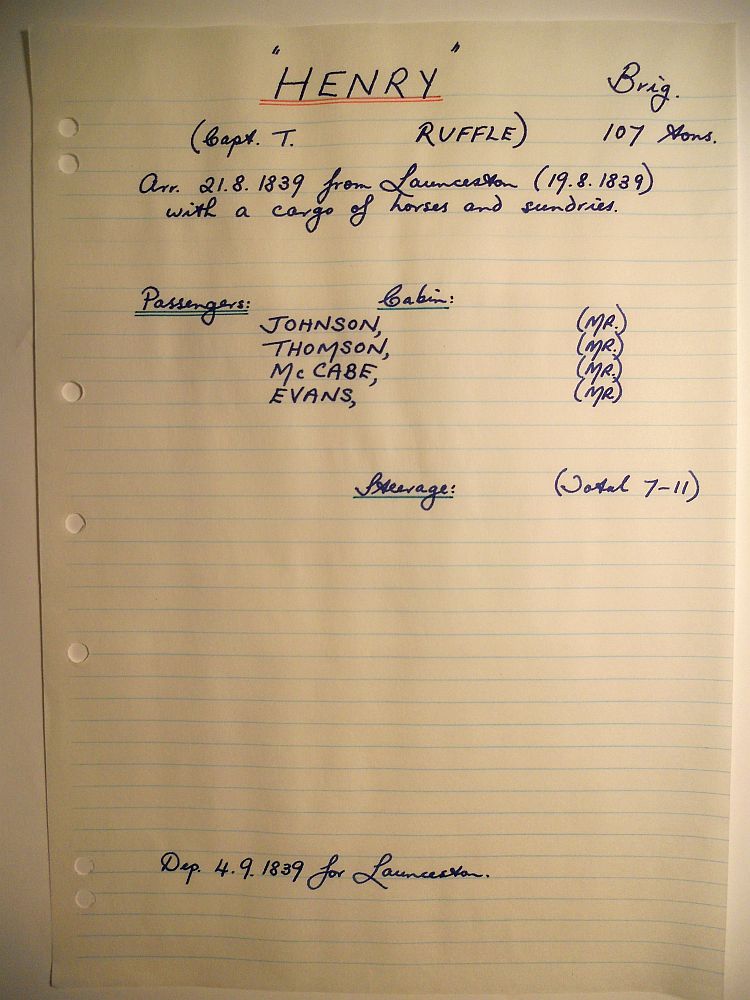 "HENRY" Brig.
(Capt. T. RUFFLE) 107 tons.
Arr. 21.8.1839 from Launceston (19.8.1839)
with a cargo of horses and sundries.
Passengers: Cabin:
JOHNSON, (MR.)
THOMSON, (MR.)
McCABE, (MR.)
EVANS, (MR)
Steerage: (Total 7-11)
Dep. 4.9.1839 for Launceston.